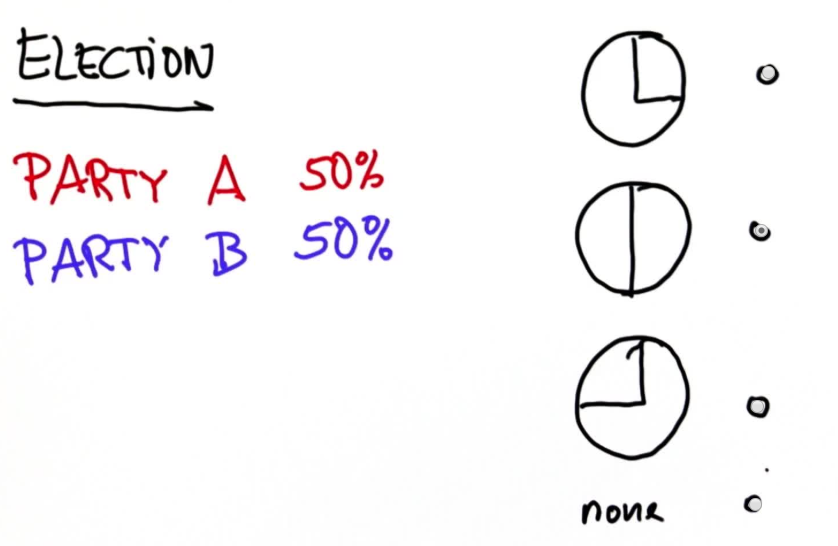 ELECTION
PARTY A 50%
PARTY B 50%
none